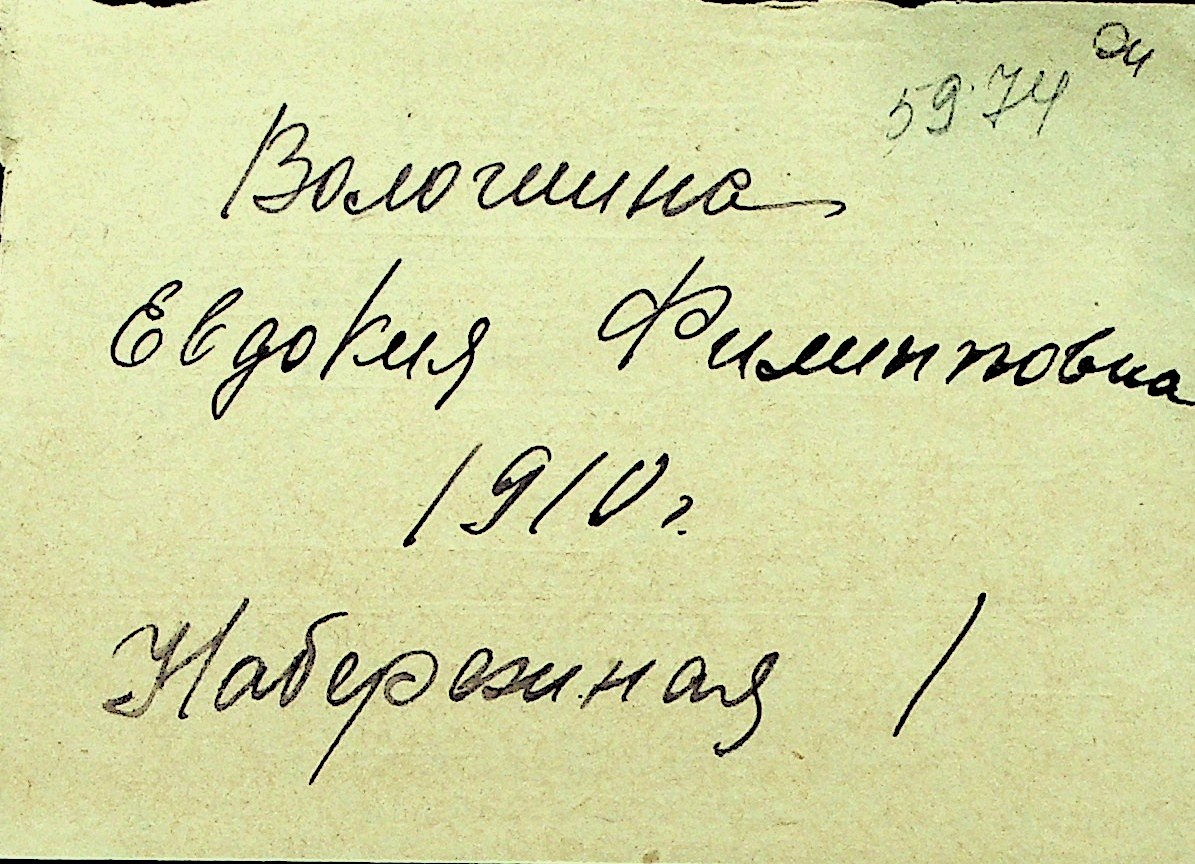 59.74
Вологшина
Евдокия Филипповна
1910г.
Набережная 1